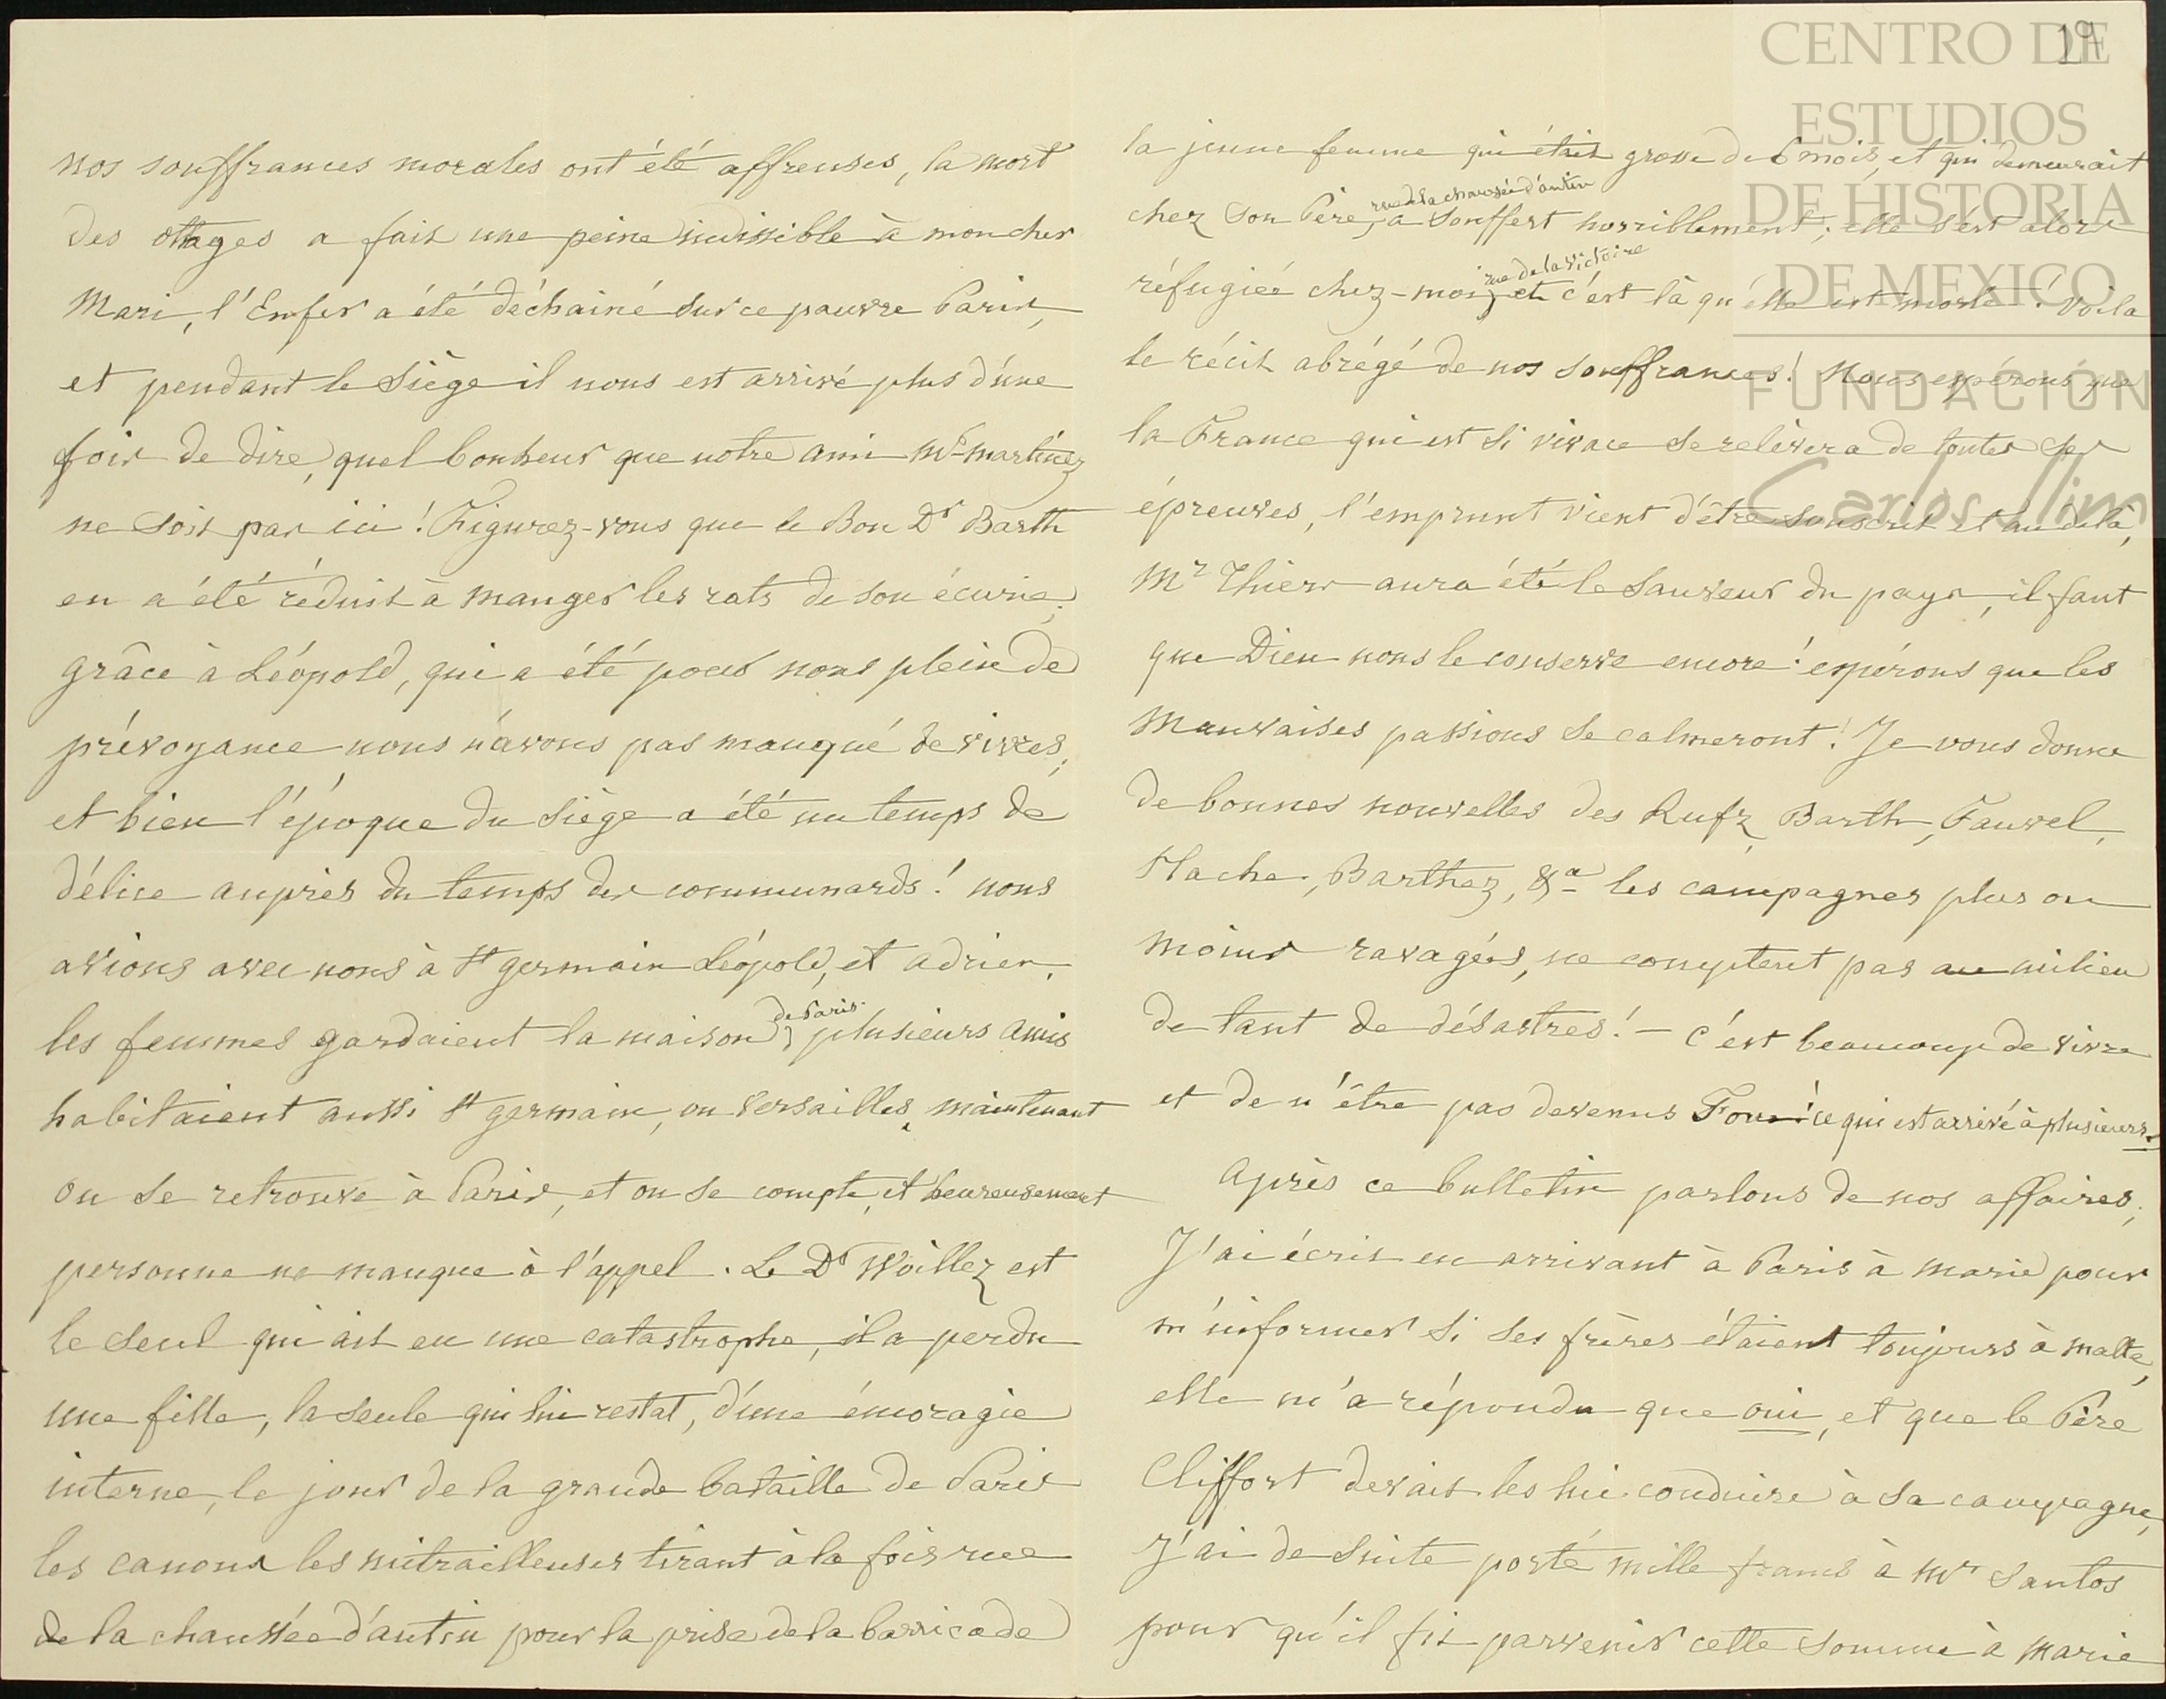 nos souffrances morales ont été affreuses, la mort
des ottages a fait une peine indissible à mon cher
Mari, l'Enfer a été déchainé sur ce pauvre Paris,
et pendant le Siège il nous est arrivé plus d'une
fois de dire, quel bonheur que notre ami Mr Martinez
ne soit pas ici ! Figurez-vous que le Bon Dr Barth
en a été réduit à manger les rats de son écurie;
grâce à Léopold, qui a été pour nous plein de
prévoyance nous n'avons pas manqué de vivres,
et bien l'époque du Siège a été un temps de
délice auprès du temps des communards ! nous
avions avec nous à St germain Léopold, et Adrien,
les femmes gardaient la maison de Paris; plusieurs amis
habitaient aussi St germain, ou Versailles, maintenant
on se retrouve à Paris, et on se compte, et heureusement
personne ne manque à l'appel. Le Dr Woillez est
le seul qui ait eu une catastrophe, il a perdu
une fille, la seule qui lui restat, d'une émoragie
interne, le jour de la grande bataille de Paris
les canons les mitrailleuses tirant à la fois rue
de la chaussée d'antin pour la prise de la barricade
19
la jeune femme qui était grosse de 6 mois, et qui demeurait
chez son Père, rue de la chaussée d'antin a souffert horriblement, elle s'est alors
réfugiée chez-moi, rue de la victoire et c'est là qu'elle est morte ! Voila
le récit abrégé de nos souffrances ! Nous espérons que
la France qui est si vivace se relèvera de toutes ses
épreuves, l'emprunt vient d'être souscrit et au delà,
Mr Thiers aura été le Sauveur du pays, il faut
que Dieu nous le conserve encore ! espérons que les
Mauvaises passions se calmeront ! Je vous donne
de bonnes nouvelles des Rufz, Barth, Fauvel,
Hache, Barthez, &a les campagnes plus ou
moins ravagées, ne comptent pas au milieu
de tant de désastres ! - c'est beaucoup de vivre
et de n'être pas devenus Fous ! ce qui est arrivé à plusieurs.
Après ce bulletin parlons de nos affaires;
J'ai écrit en arrivant à Paris à Marie pour
m'informer si ses frères étaient toujours à Malte,
elle m'a répondu que oui, et que le Père
Cliffort devait les lui conduire à sa campagne,
J'ai de suite porté mille francs à Mr Santos
pour qu'il fit parvenir cette somme à Marie
CENTRO DE
ESTUDIOS
DE HISTORIA
DE MEXICO
FUNDACIÓN
Carlos Slim